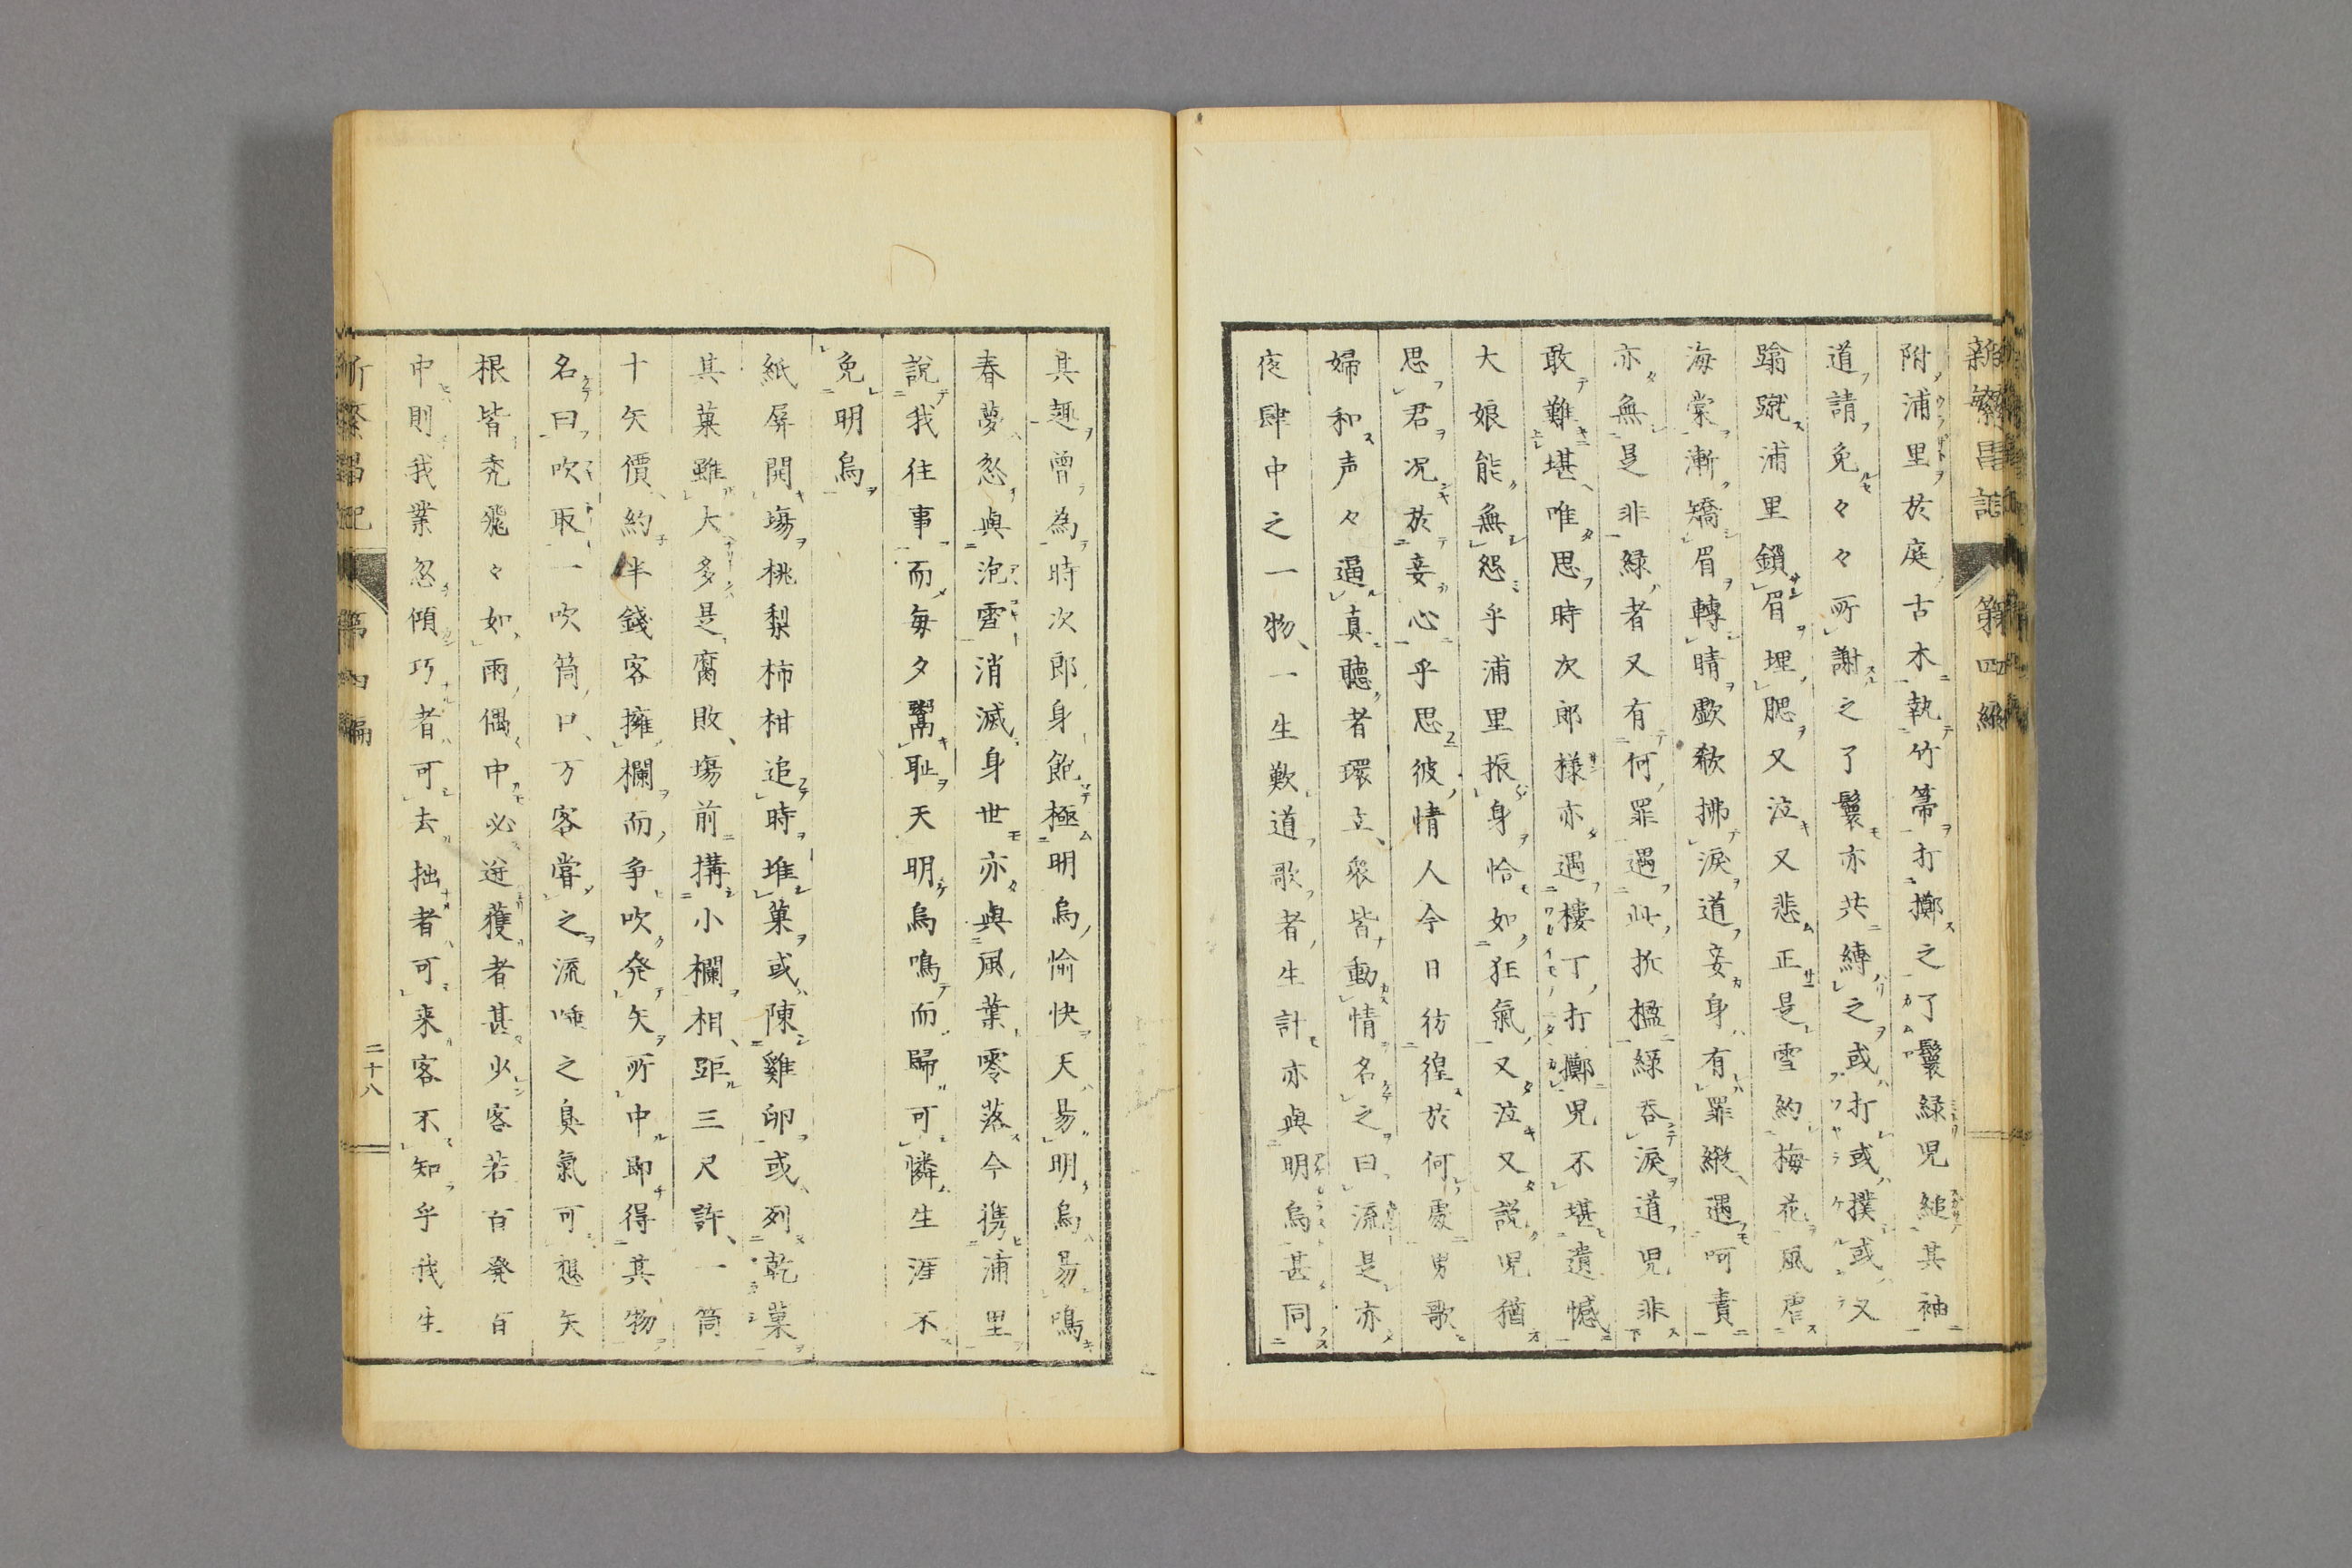 新繁昌記 第四編
附浦里於庭古木執竹箒打擲之了鬟緑児縋其袖
道請免々々所謝之了鬟亦共縛之或打或撲或又
蹋蹴浦里鎖眉埋腮又泣又悲正是雪約梅花風虐
海棠漸矯眉轉睛歔欷拂淚道妾身有罪縱遇呵責
亦無是非緑者又有何罪遇此折檻緑呑淚道児非
敢難堪唯思時次郎様亦遇樓丁打擲児不堪遺憾
大娘能無怨乎浦里振身恰如狂氣又泣又説児猶
思君况於妾心乎思彼情人今日彷徨於何處男歌
婦和声々逼真聽者環立衆皆動情名之曰流是亦
夜肆中之一物一生歎道歌者生計亦與明烏甚同
其趣曾為時次郎身飽極明烏愉快天易明烏易鳴
春夢忽與泡雪消滅身世亦與風葉零落今携浦里
說我往事而毎夕鬻耻天明烏鳴而歸可憐生涯不
免明烏
紙屏開場桃梨柿柑追時堆菓或陳雞卵或列乾菓
其菓雖大多是腐敗場前搆小欄相距三尺許一筒
十矢價約半錢客擁欄而争吹発矢所中即得其物
名曰吹取一吹筒口万客嘗之流唾之臭氣可想矢
根皆禿飛々如雨偶中必迸獲者甚少客若百発百
中則我業忽傾巧者可去拙者可来客不知乎我生
新繁昌記 第四編
二十八